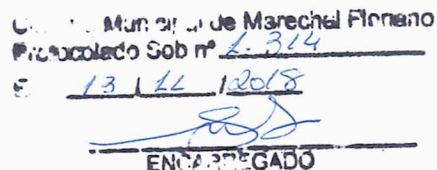 Municipal de Marechal Floriano
Protocolado Sob nº 1.314
Em 13 / 11 / 2018
ENCARREGADO